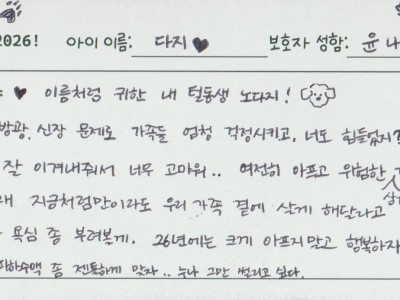 2026! 아이 이름: 다지♥ 보호자 성함: 윤 나
♥ 이름처럼 귀한 내 털동생 노다지!
방광, 신장 문제로 가족들 엄청 걱정시키고, 너도 힘들었지?
잘 이겨내줘서 너무 고마워.. 여전히 아프고 위험한
지금처럼만이라도 우리 가족 곁에 살게 해달라고
욕심 좀 부려볼게. 26년에는 크게 아프지말고 행복하자
피하수액 좀 젠틀하게 맞자.. 누나 그만 찔리고 싶다.